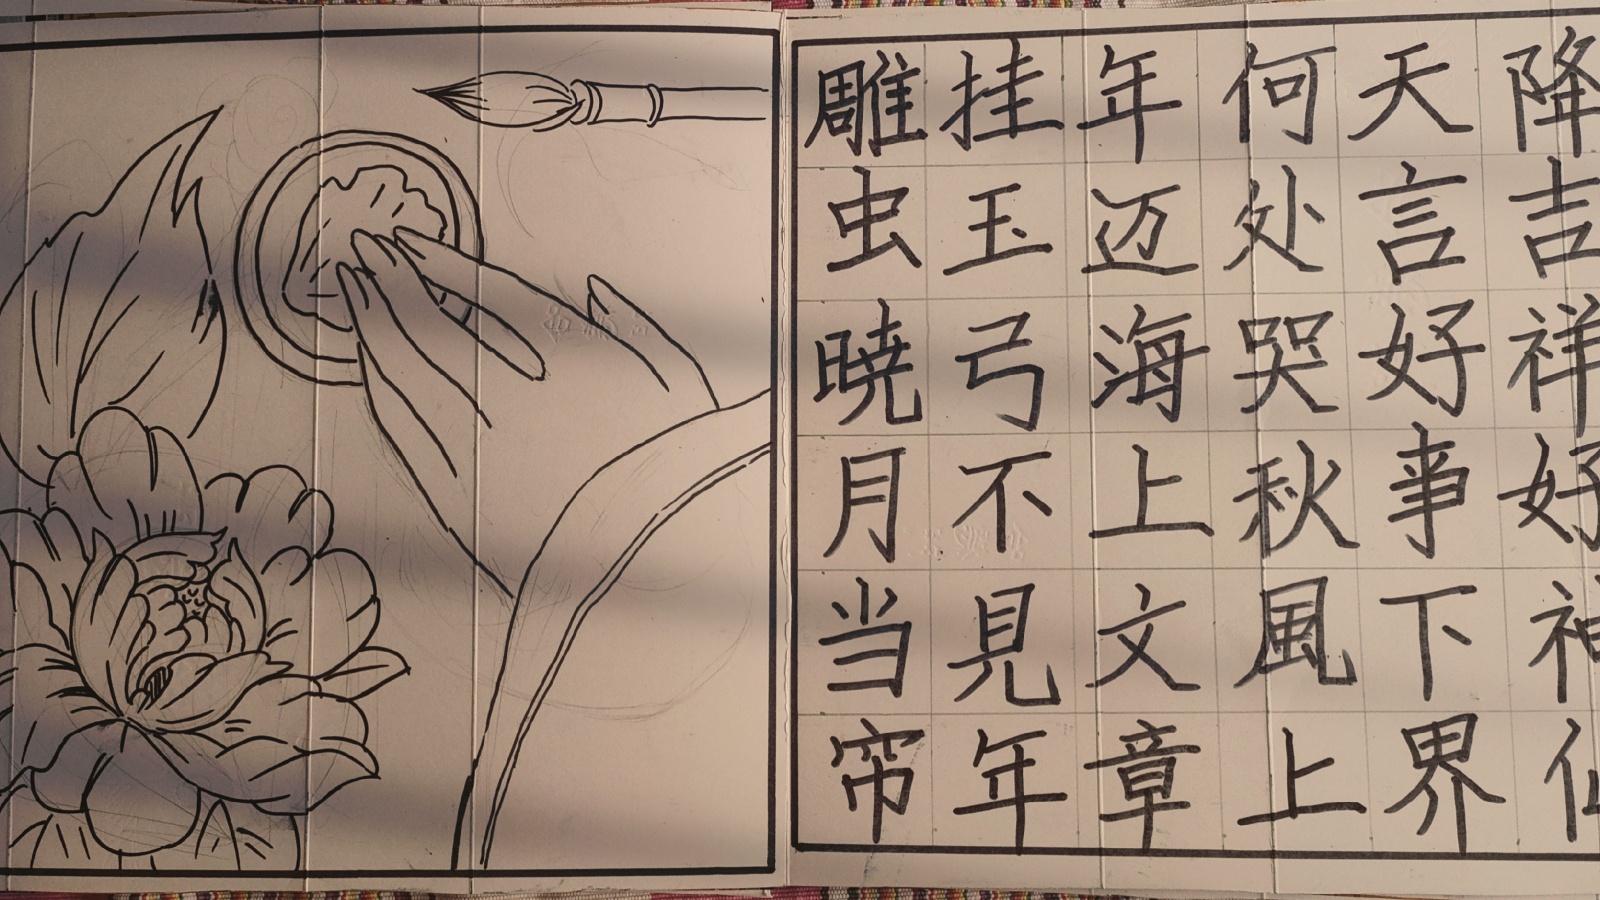 雕虫暁月当帘
挂玉弓不見年
年迈海上文章
何处哭秋風上
天言好事下界
降吉祥好神